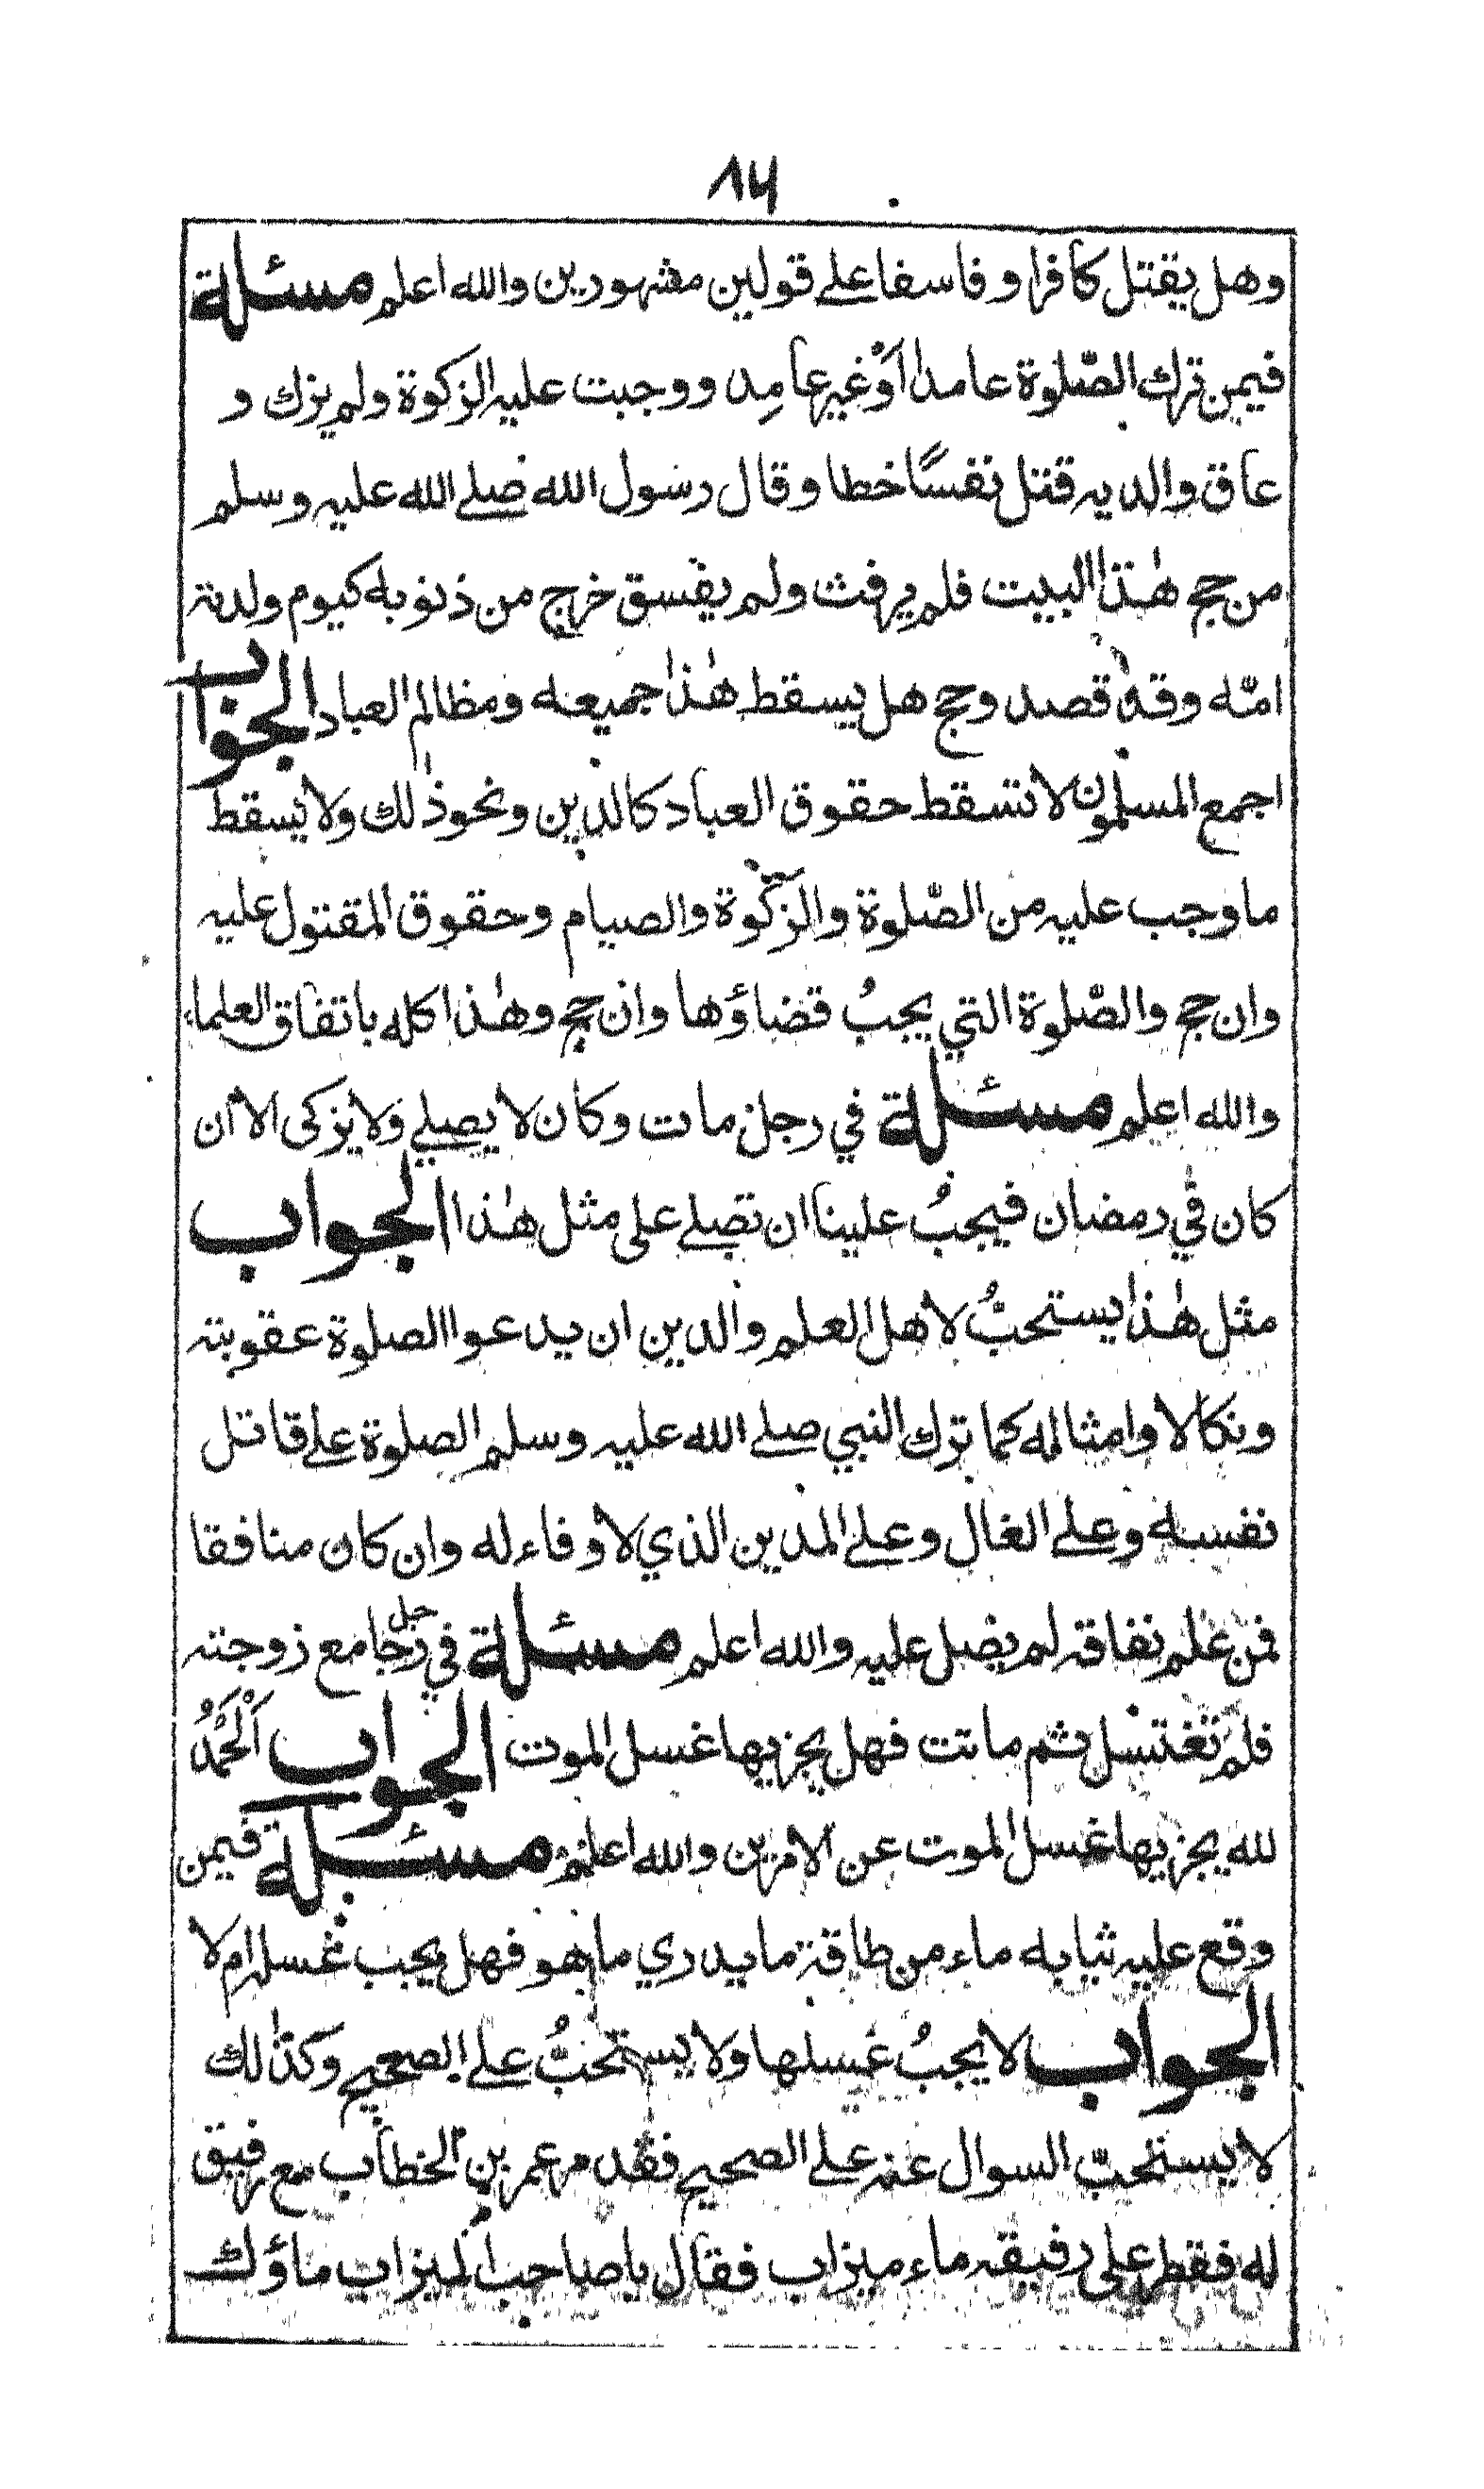 ١٦
وهل يقتل كافرا وفاسقا علے قولين مشهورين والله اعلم مسئلة
فيمن ترك الصّلوة عامدا اَوْ غير عامِد ووجبت عليه الزكوة ولم يزك و
عاق والديه قتل نفسًا خطا وقال رسول الله صلے الله عليه وسلم
من حج هٰذا البيت فلم يرفث ولم يفسق خرج من ذنوبه كيوم ولدته
امّه وقد قصد وحج هل يسقط هٰذا جميعه ومظالم العباد الجواب
اجمع المسلمون لا تسقط حقوق العباد كالدين ونحو ذٰلك ولا يسقط
ما وجب عليه من الصّلوة والزّكوة والصيام وحقوق المقتول عليه
وان حج والصّلوة التي يجبُ قضاؤها وان حج وهٰذا كله باتفاق العلماء
والله اعلم مسئلة في رجل مات وكان لا يصلے ولا يزكى الا ان
كان في رمضان فيجبُ علينا ان نصلے على مثل هٰذا الجواب
مثل هٰذا يستحبُّ لاهل العلم والدين ان يدعوا الصلوة عقوبته
ونكالا وامثاله كما ترك النبي صلے الله عليه وسلم الصلوة علے قاتل
نفسه وعلے الغال وعلے المدين الذي لا وفاء له وان كان منافقا
فمن علم نفاقه لم يصل عليه والله اعلم مسئلة في رجل جامع زوجته
فلم تغتسل ثم ماتت فهل يجزيها غسل الموت الجواب اَلْحَمْدُ
لله يجزيها غسل الموت عن الامرين والله اعلم مسئلة فيمن
وقع عليه ثيابه ماء من طاقة ما يدري ما هو فهل يجب غسله ام لا
الجواب لا يجبُ غسلها ولا يستحبُّ علے الصحيح وكذٰلك
لا يستحبّ السوال عنه علے الصحيح فقد مر عمر بن الخطاب مع رفيق
له فقطر على رفيقه ماء ميزاب فقال يا صاحب الميزاب ماؤك